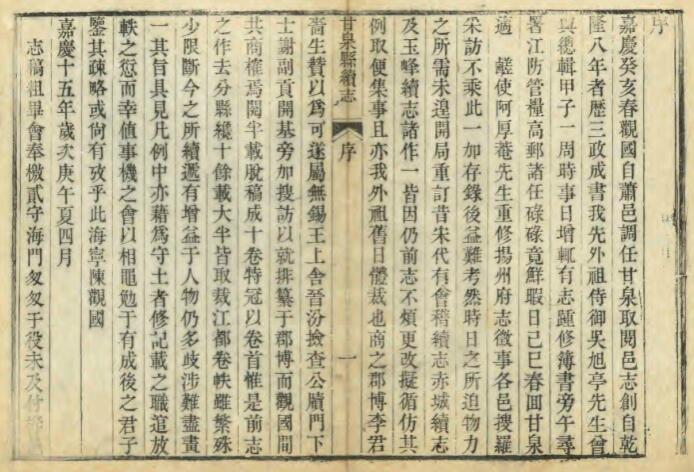 序
嘉慶癸亥春觀國自蕭邑調任甘泉取閱邑志創自乾
隆八年者歷三政成書我先外祖侍御吳旭亭先生曾
與總輯甲子一周時事日增輒有志踵修簿書旁午尋
署江防管糧高郵諸任碌碌竟鮮暇日己巳春囬甘泉
適 鹺使阿厚菴先生重修揚州府志徵事各邑搜羅
采訪不乘此一加存錄後益難考然時日之所迫物力
之所需未遑開局重訂昔宋代有會稽續志赤城續志
及玉峰續志諸作一皆因仍前志不煩更改擬循仿其
例取便集事且亦我外祖舊日體裁也商之郡博李君
甘泉縣續志 序 一
嗇生贊以爲可遂屬無錫王上舍晉汾撿查公牘門下
士謝副貢開基旁加搜訪以就排纂于郡博而觀國間
共商榷焉閱半載脫稿成十卷特冠以卷首惟是前志
之作去分縣纔十餘載大半皆取裁江都卷帙雖繁殊
少限斷今之所續遞有增益于人物仍多歧涉難盡畫
一其旨具見凡例中亦藉爲守土者修記載之職逭放
軼之愆而幸值事機之會以相黽勉于有成後之君子
鑒其疎略或尙有攷乎此海寧陳觀國
嘉慶十五年歲次庚午夏四月
志稿粗畢會奉檄貳守海門匆匆于役未及付